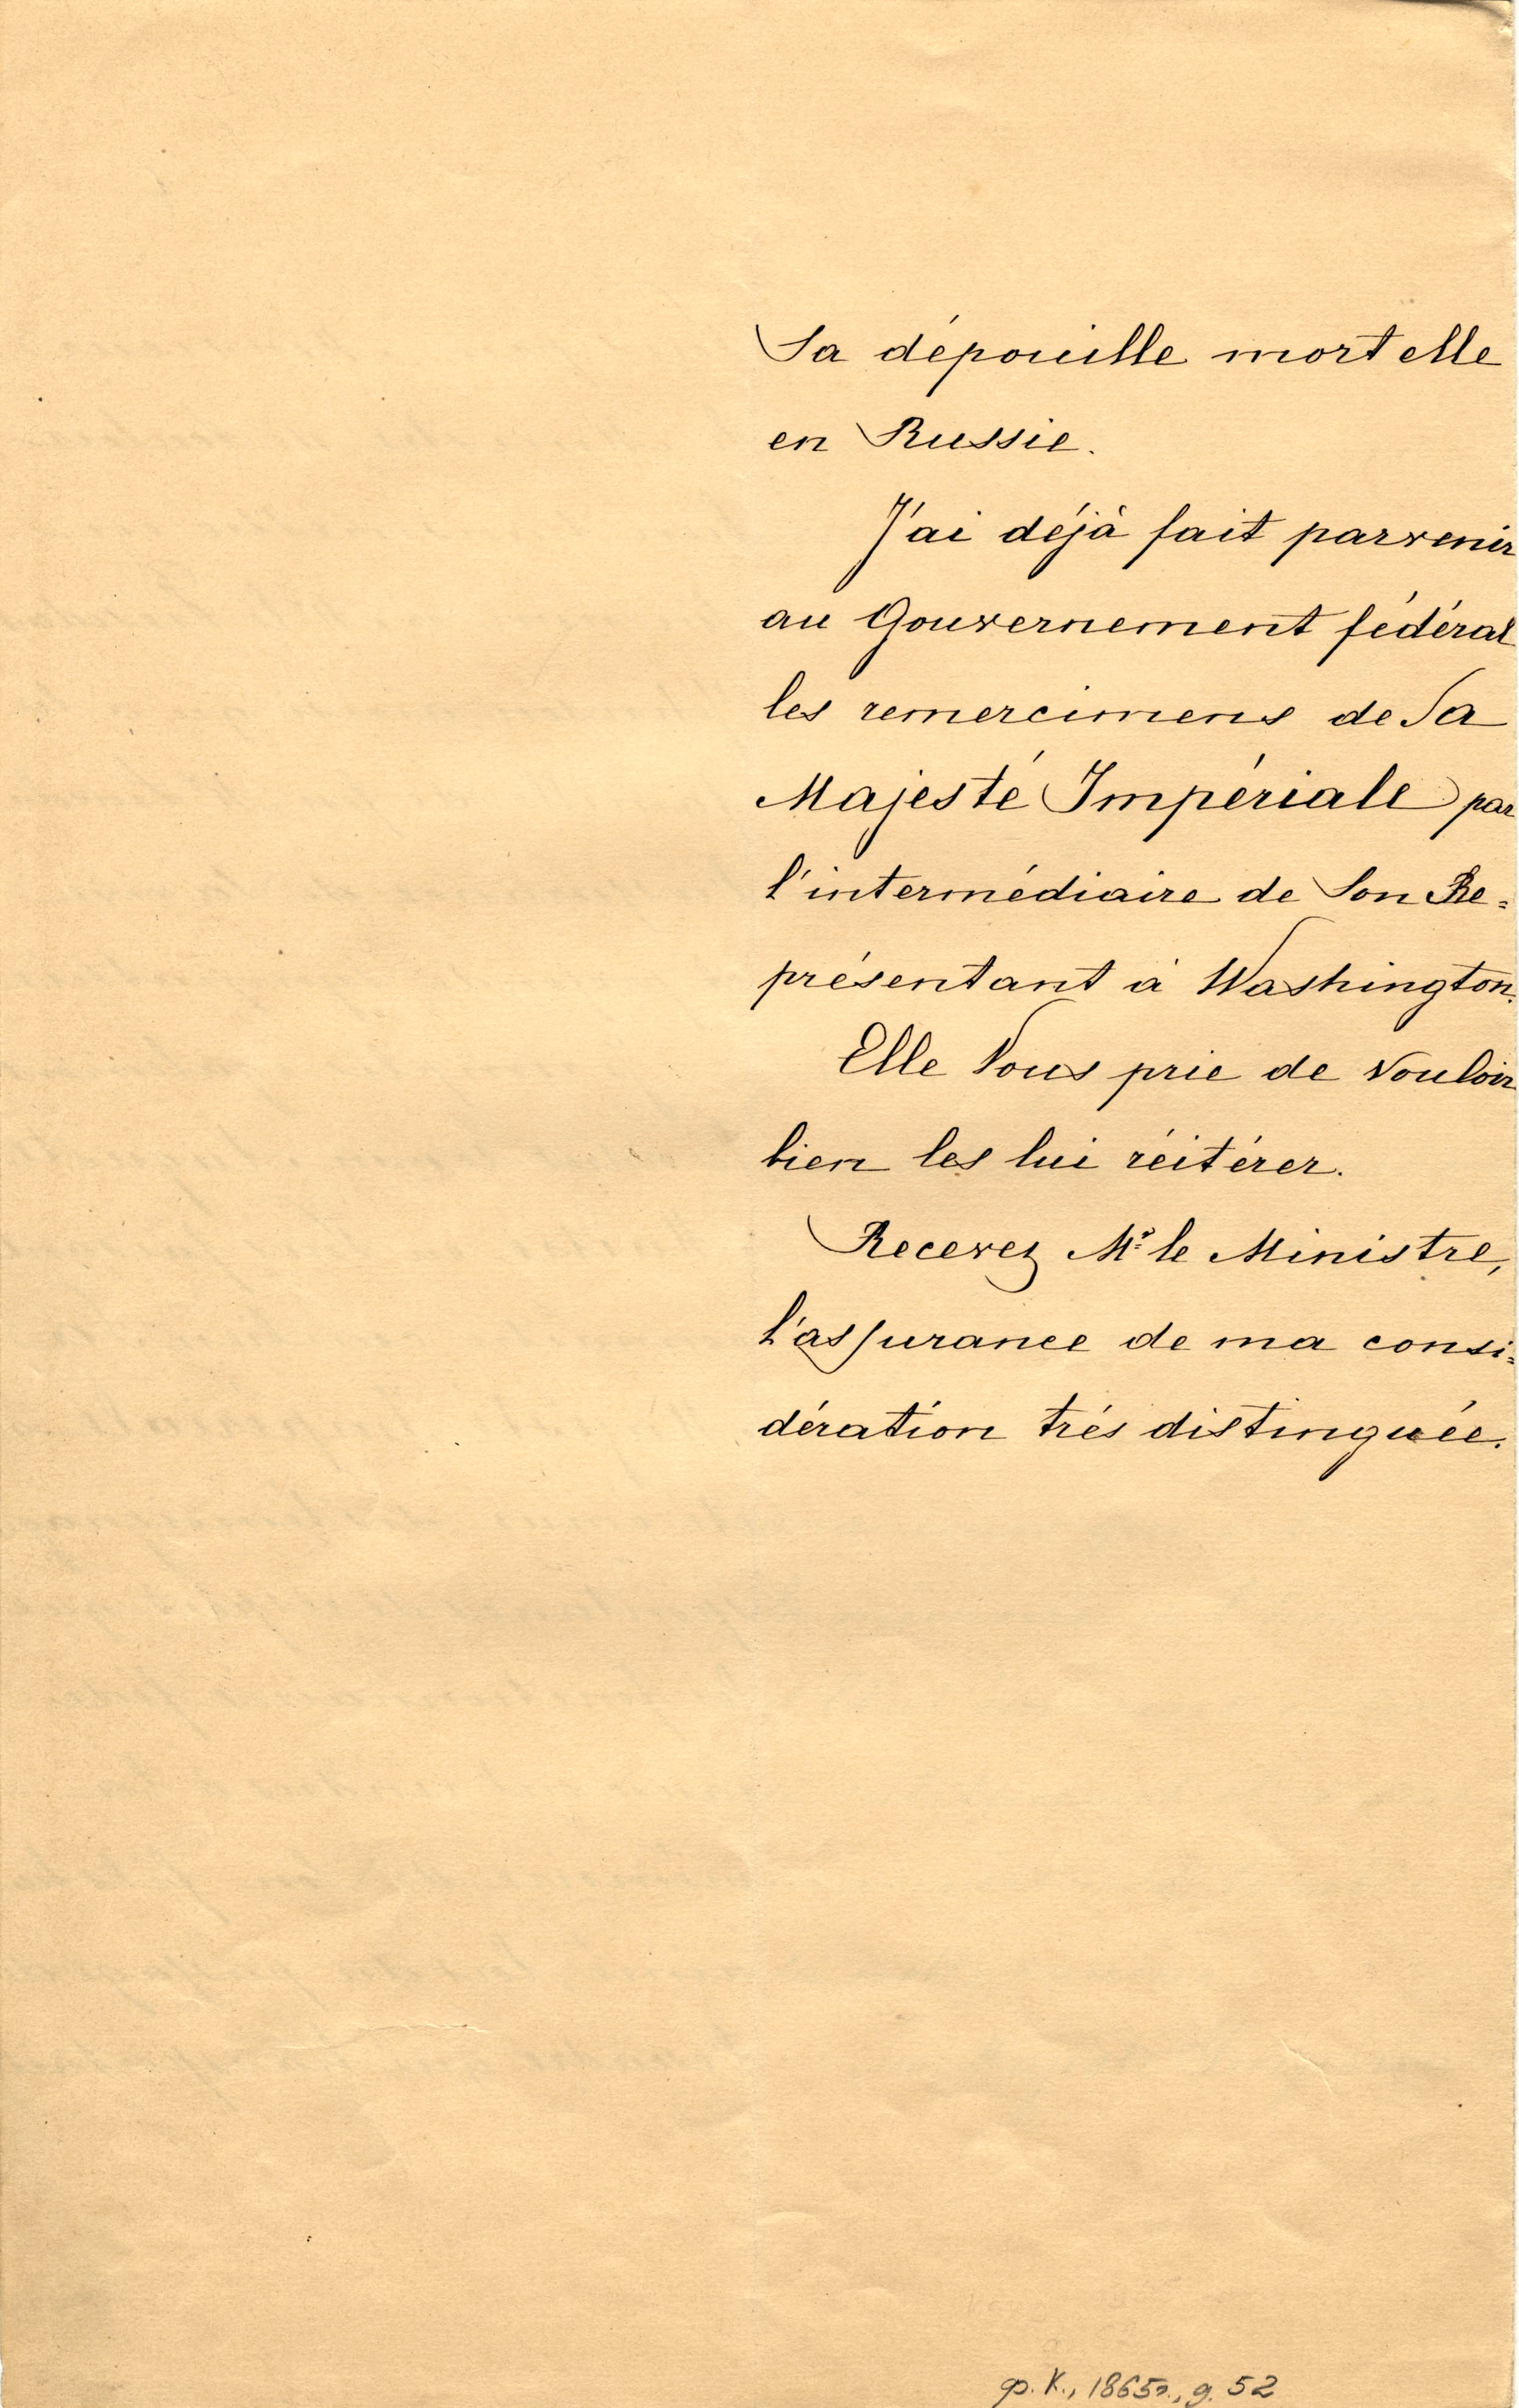 Sa dépouille mortelle
en Russie.
J'ai déjà fait parvenir
au Gouvernement fédéral
les remercimens de Sa
Majesté Impériale par
l'intermédiaire de Son Re=
présentant à Washington.
Elle Vous prie de vouloir
bien les lui réitérer.
Recevez Mr le Ministre,
l'assurance de ma consi=
dération très distinguée.
ф. К., 1865г., д. 52